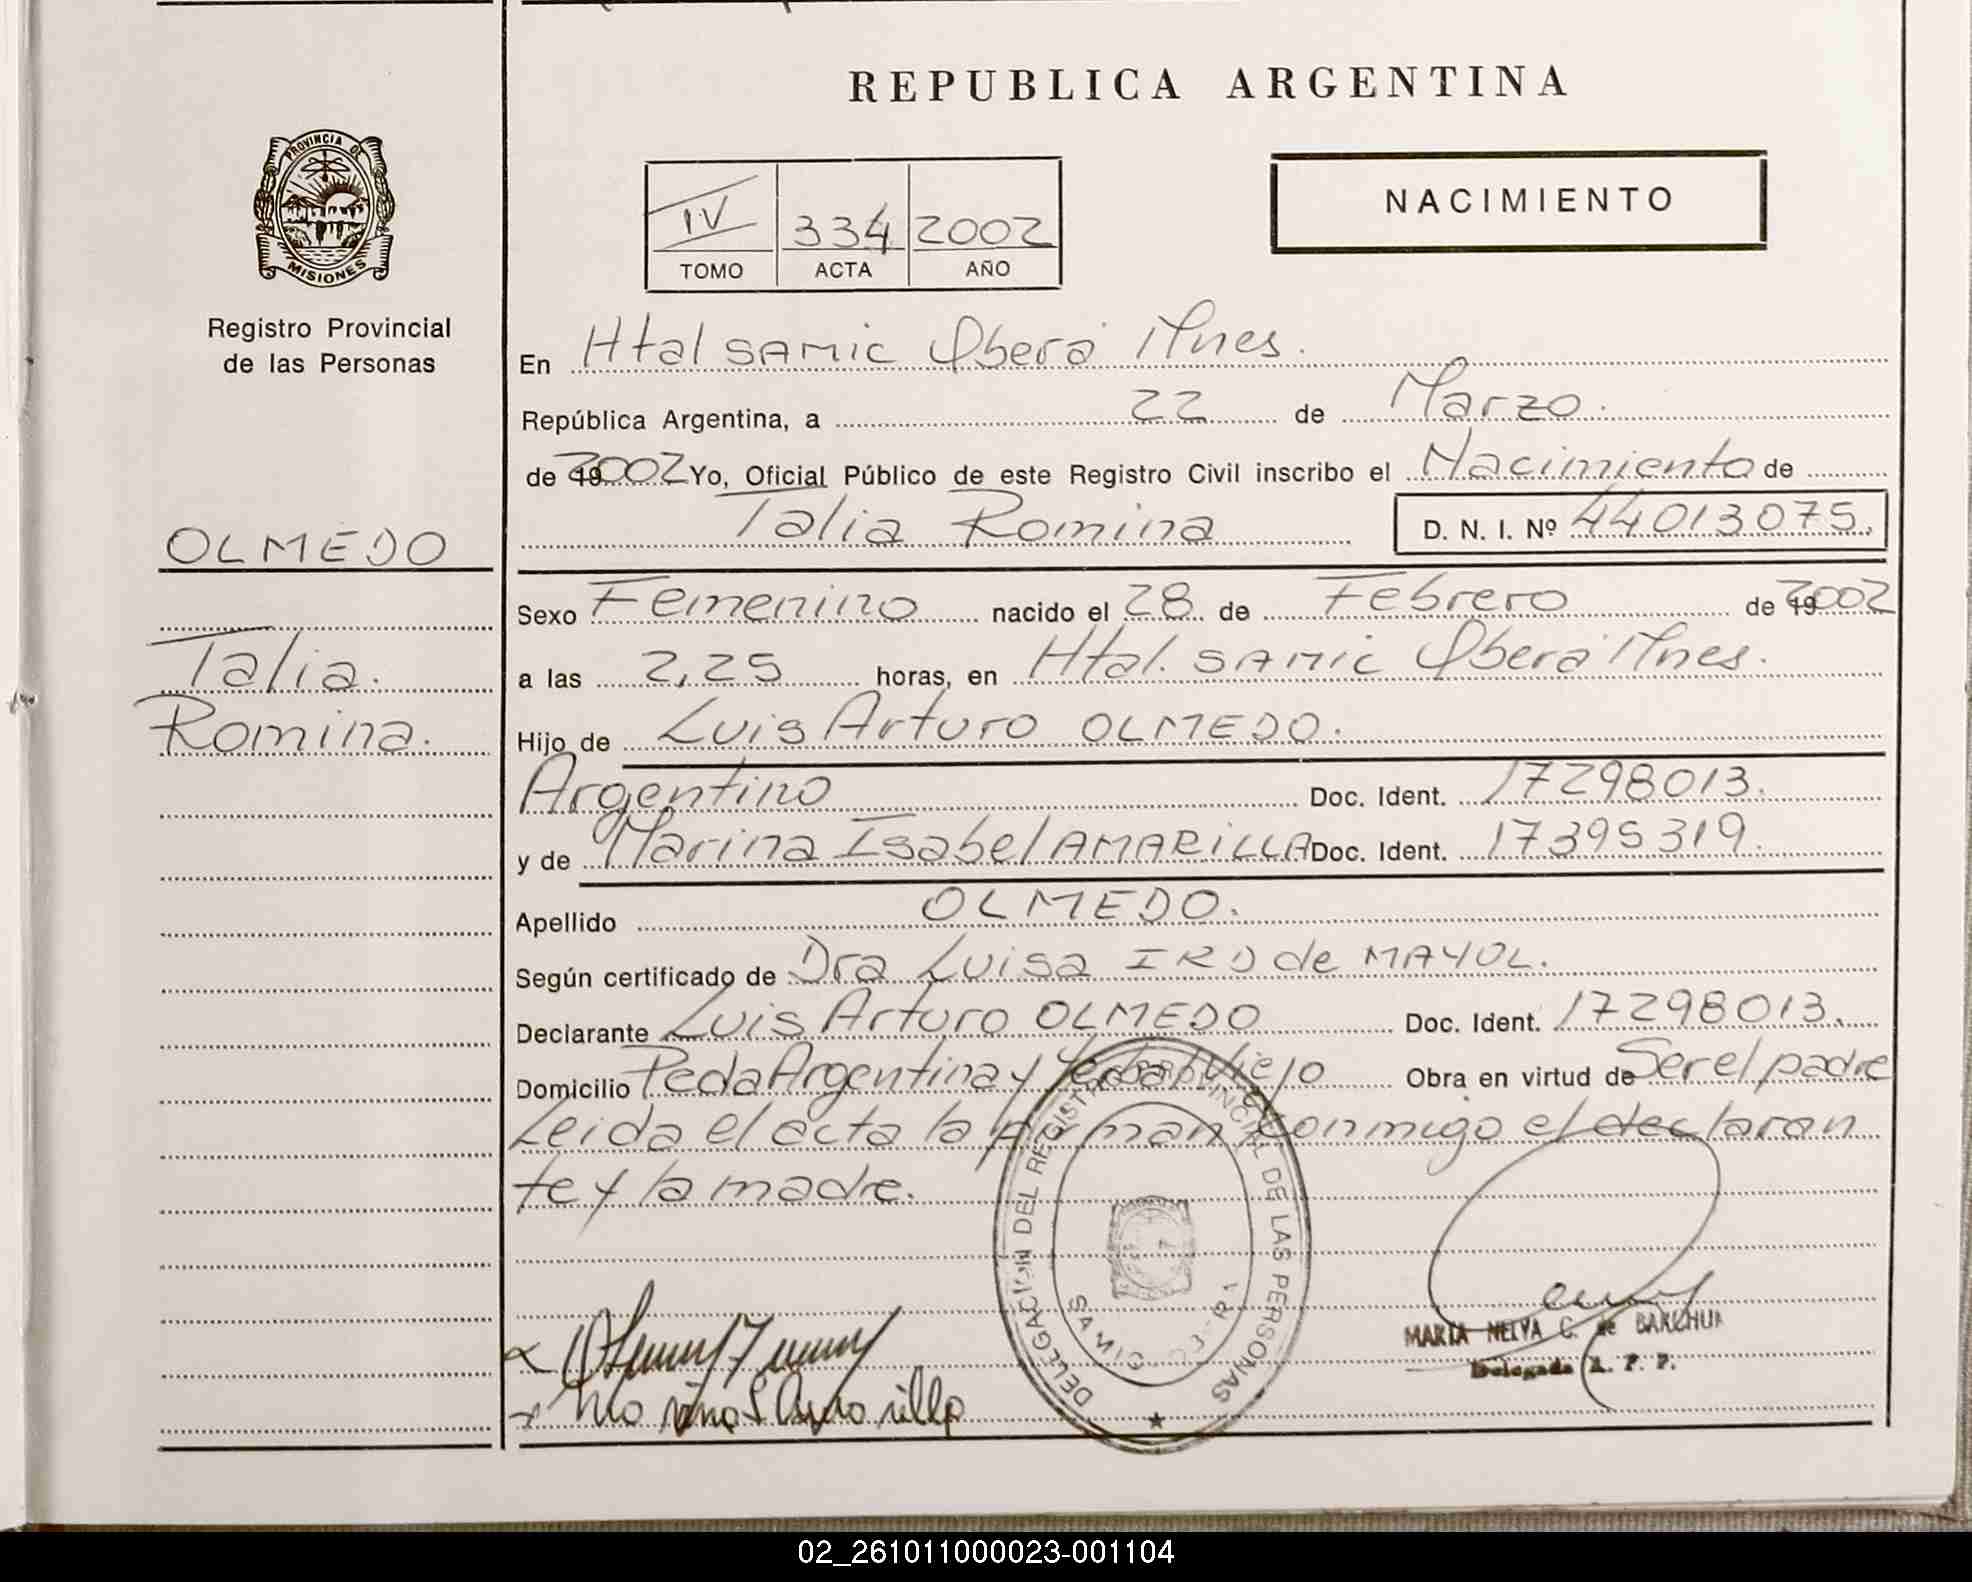 REPUBLICA ARGENTINA
PROVINCIA DE
MISIONES
Registro Provincial
de las Personas
IV 334 2002
TOMO ACTA AÑO
NACIMIENTO
En Htal SAMIC Oberá Mnes.
República Argentina, a 22 de Marzo.
de 2002 Yo, Oficial Público de este Registro Civil inscribo el Nacimiento de
Talia Romina D. N. I. Nº 44013075.
OLMEDO
Talia.
Romina.
Sexo Femenino nacido el 28 de Febrero de 2002
a las 2,25 horas, en Htal. SAMIC Oberá Mnes.
Hijo de Luis Arturo OLMEDO.
Argentino Doc. Ident. 17298013.
y de Marina Isabel AMARILLA Doc. Ident. 17395319.
Apellido OLMEDO.
Según certificado de Dra Luisa IRD de MAYOL.
Declarante Luis Arturo OLMEDO Doc. Ident. 17298013.
Domicilio Peda Argentina y Yerbal Viejo Obra en virtud de Ser el padre
Leida el acta la firman conmigo el declaran
te y la madre.
DELEGACION DEL REGISTRO PROVINCIAL DE LAS PERSONAS
SAMIC
MARIA NELVA C. de
Delegada R. P. P.
02_261011000023-001104